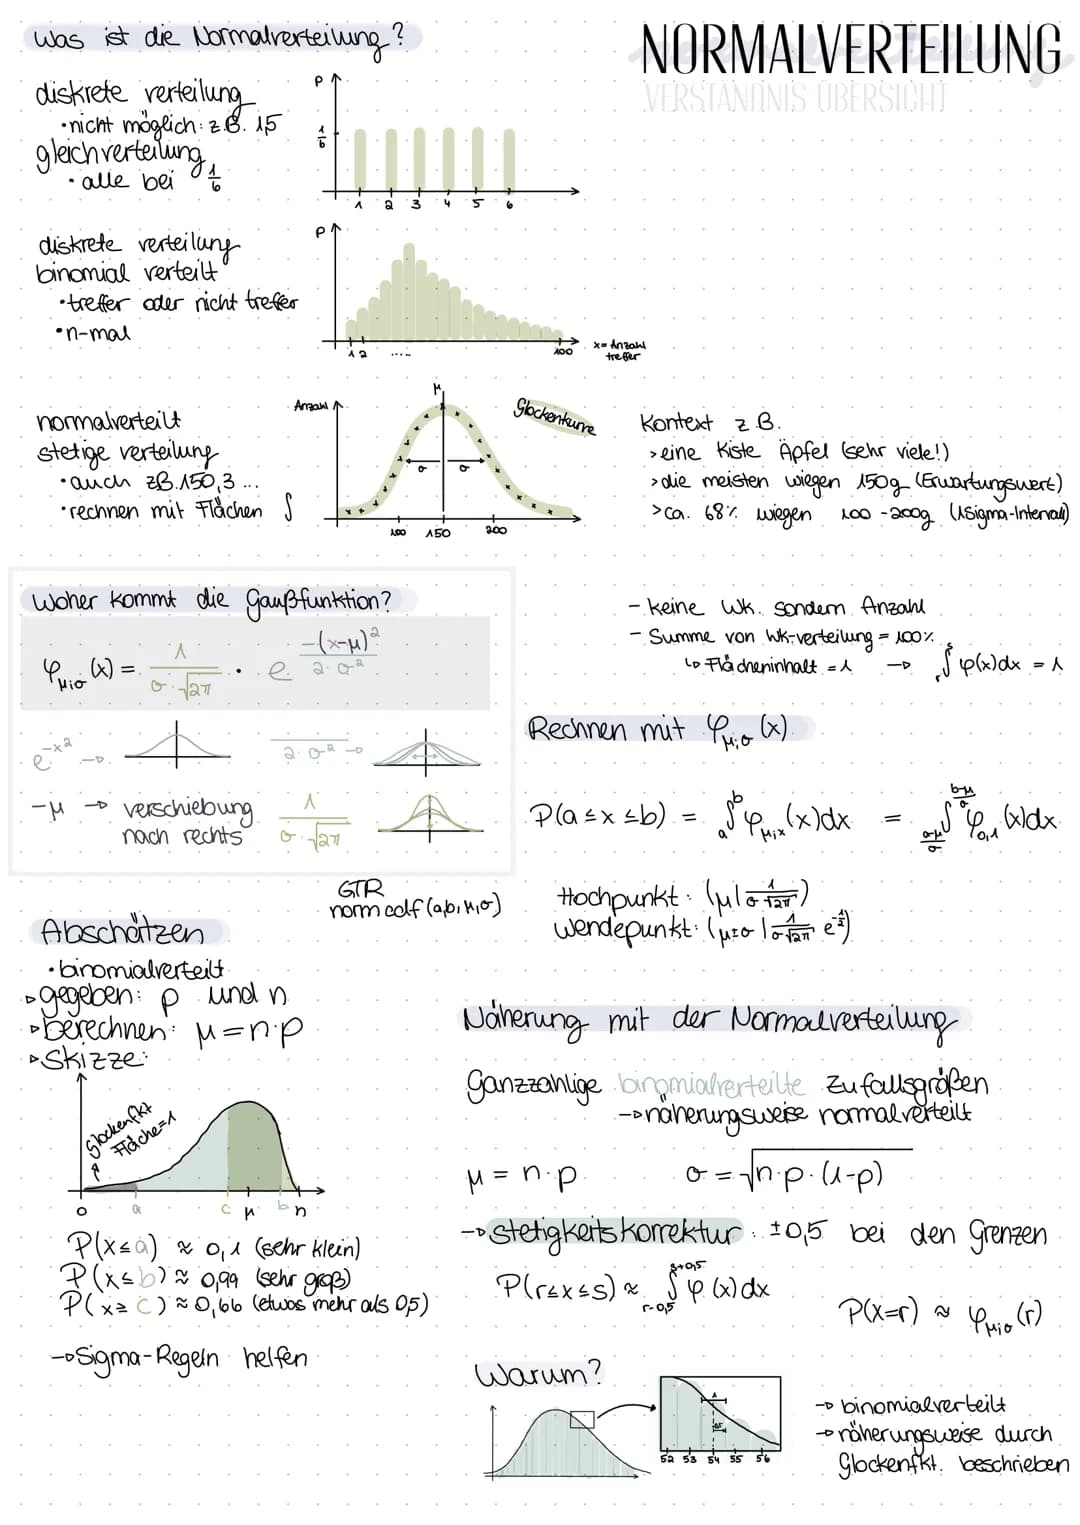 NORMALVERTEILUNG
VERSTÄNDNIS ÜBERSICHT
Was ist die Normalverteilung?
diskrete verteilung
•nicht möglich: z.B. 1,5
gleichverteilung
• alle bei 1/6
P
1/6
1 2 3 4 5 6
diskrete verteilung
binomial verteilt
•treffer oder nicht treffer
•n-mal
P
1 2 .... 100
x= Anzahl
treffer
normalverteilt
stetige verteilung
•auch z.B. 150,3 ...
•rechnen mit Flächen ∫
Anzahl
μ
σ σ
100 150 200
Glockenkurve
Kontext z.B.
>eine Kiste Äpfel (sehr viele!)
>die meisten wiegen 150g (Erwartungswert)
>ca. 68% wiegen 100-200g (1Sigma-Intervall)
- keine Wk. sondern Anzahl
- Summe von Wk-verteilung = 100%
↳ Flächeninhalt = 1 → ∫ φ(x)dx = 1
Woher kommt die Gaußfunktion?
φμ;σ(x) = 1/(σ·√2π) · e^(-(x-μ)²/(2·σ²))
e^-x² →
2·σ² →
-μ → verschiebung
nach rechts
1/(σ·√2π)
Rechnen mit φμ;σ(x)
P(a≤x≤b) = a∫b φμ;x(x)dx = (a-μ)/σ ∫ (b-μ)/σ φ0,1(x)dx
GTR
normcdf(a,b,μ,σ)
Hochpunkt: (μ|1/(σ√2π))
Wendepunkt: (μ±σ|1/(σ√2π) e^(-1/2))
Abschätzen
•binomialverteilt
▹gegeben: p und n
▹berechnen: μ=n·p
▹Skizze:
Glockenfkt
Fläche=1
0 a c μ b n
P(x≤a) ≈ 0,1 (sehr klein)
P(x≤b) ≈ 0,99 (sehr groß)
P(x≥c) ≈ 0,66 (etwas mehr als 0,5)
→Sigma-Regeln helfen
Näherung mit der Normalverteilung
Ganzzahlige binomialverteilte Zufallsgrößen
→näherungsweise normalverteilt
μ = n·p σ = √n·p·(1-p)
→Stetigkeitskorrektur: ±0,5 bei den Grenzen
P(r≤x≤s) ≈ r-0,5∫s+0,5 φ(x)dx
P(X=r) ≈ φμ;σ(r)
Warum?
1
0,5
52 53 54 55 56
→ binomialverteilt
→näherungsweise durch
Glockenfkt. beschrieben